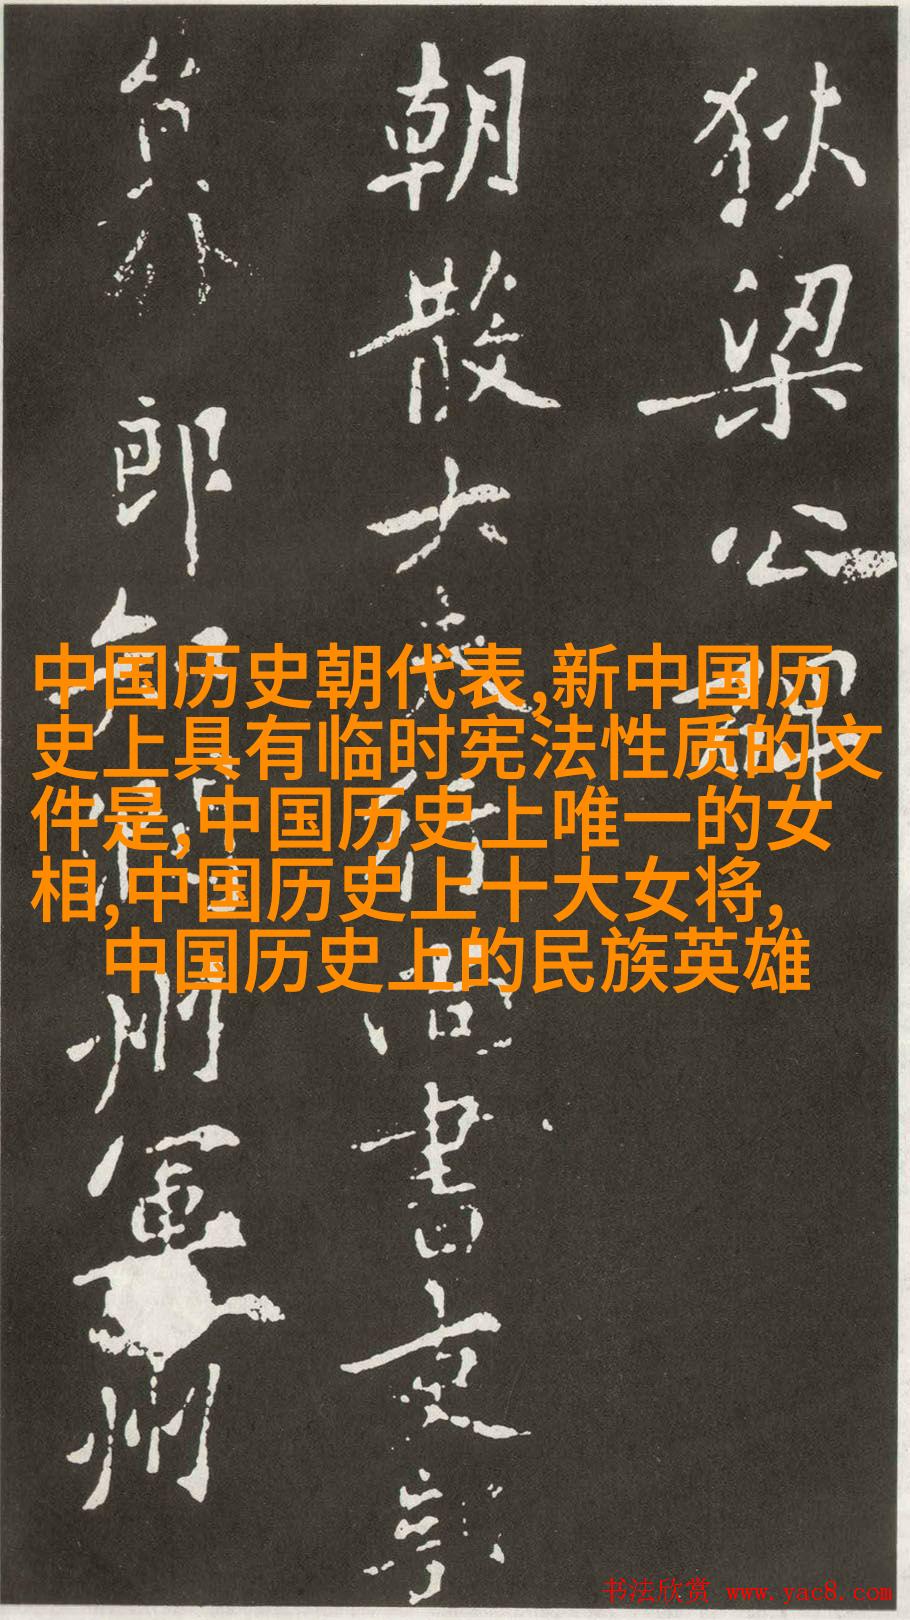 狄梁公碑
朝散大夫行尚書吏部
員外郎知潤州軍州
中国历史朝代表,新中国历
史上具有临时宪法性质的文
件是,中国历史上唯一的女
相,中国历史上十大女将,
中国历史上的民族英雄
书法欣赏 www.yac8.com